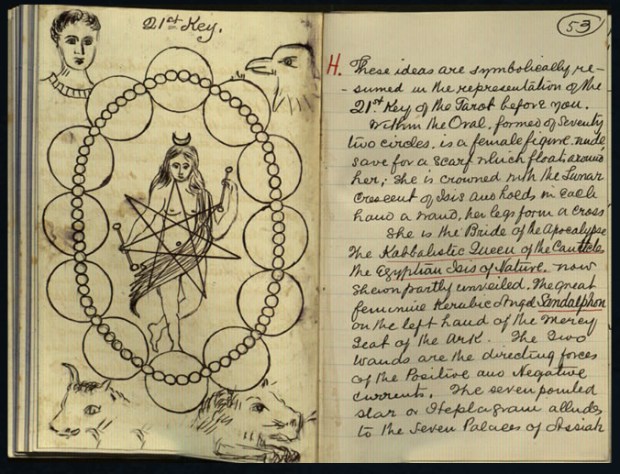 21st Key.
53
H. These ideas are symbolically re-
-sumed in the representation of the
21st Key of the Tarot before you.
Within the Oval, formed of Seventy
two circles, is a female figure, nude
save for a scarf which floats around
her; she is crowned with the Lunar
Crescent of Isis and holds in each
hand a wand, her legs form a cross
She is the Bride of the Apocalypse
The Kabbalistic Queen of the Canticles
the Egyptian Isis of Nature, now
shewn partly unveiled. The great
feminine Kerubic Angel Sandalphon
on the left hand of the Mercy
Seat of the Ark. The Two
Wands are the directing forces
of the Positive and Negative
currents. The seven pointed
star or Heptagram alludes
to the Seven Palaces of Assiah